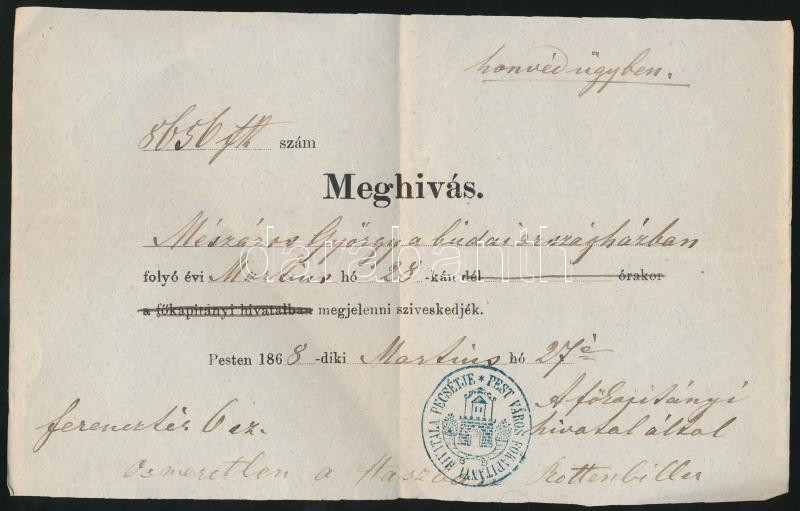 honvéd ügyben.
8656 fk szám
Meghivás.
Mészáros György a budai országházban
folyó évi Martius hó 28 -kán dél órakor
a főkapitányi hivatalban megjelenni sziveskedjék.
Pesten 1868 -diki Martius hó 27é
A főkapitányi
hivatal által
ferencztér 6 sz.
Rottenbiller
Ismeretlen a
PEST VÁROS FŐKAPITÁNYI HIVATALA PECSÉTJE
darabanth